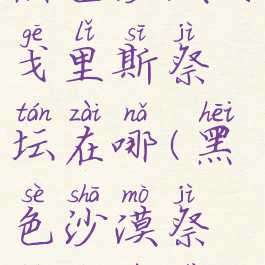 gē lǐ sī jì
戈里斯祭
tán zài nǎ hēi
坛在哪(黑
sè shā mò jì
色沙漠祭